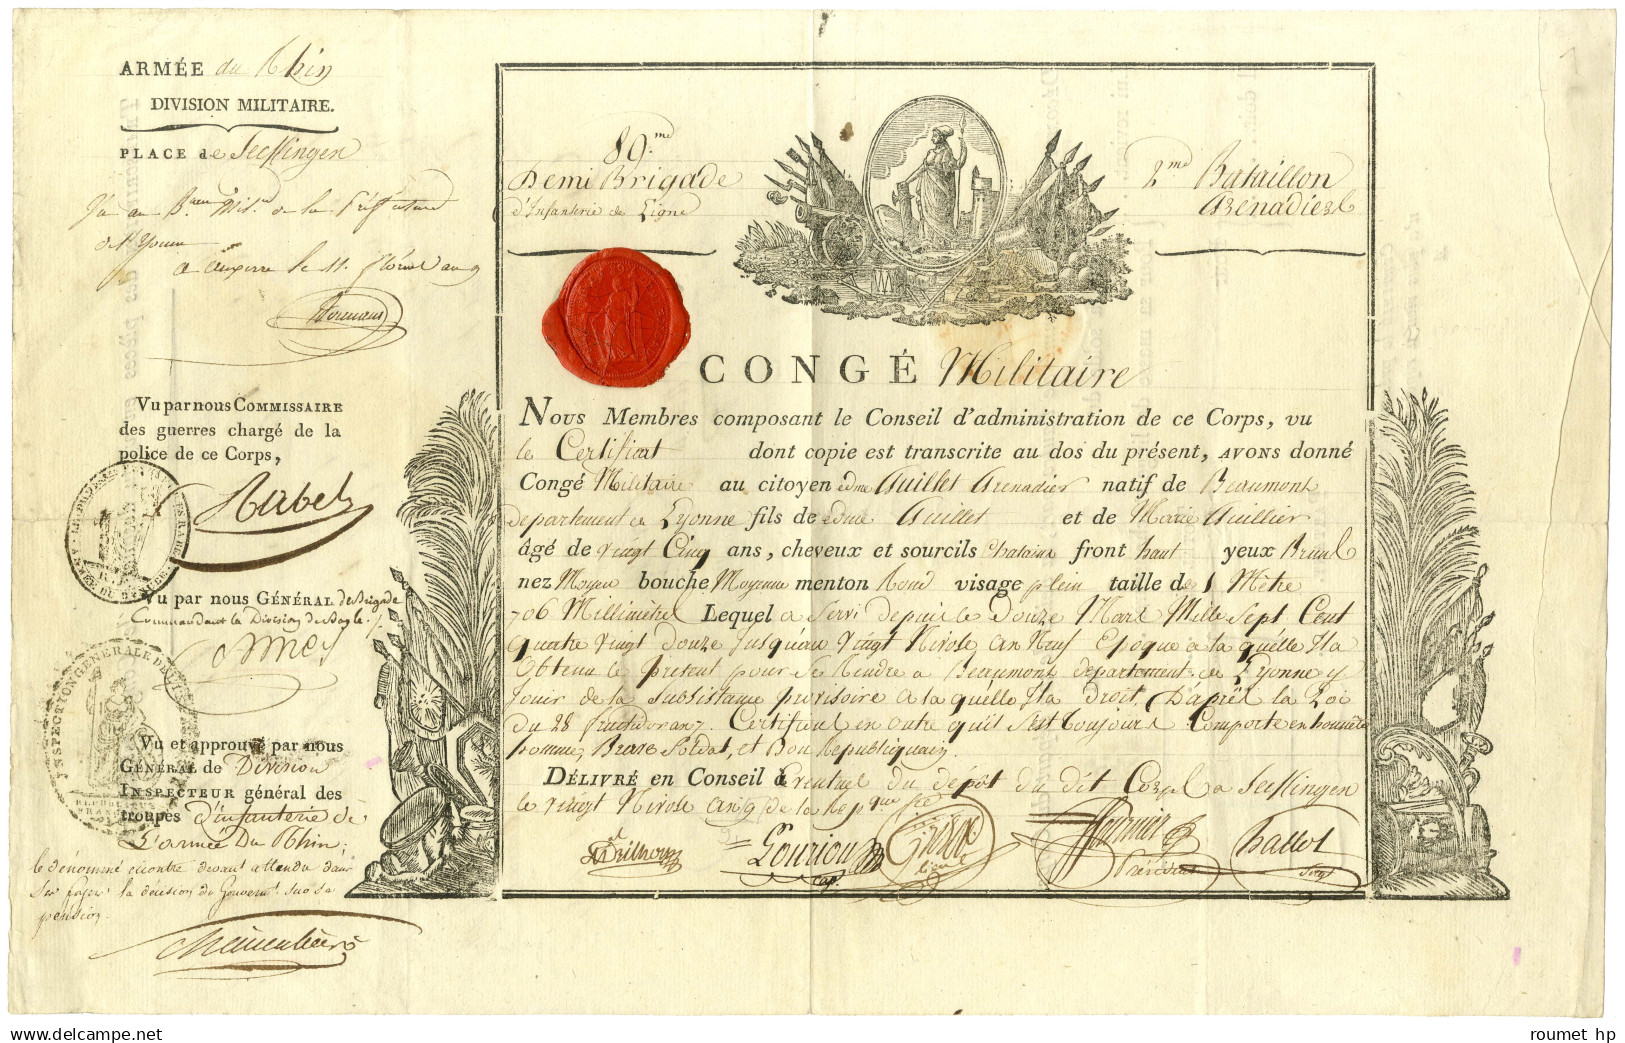 ARMÉE du Rhin
DIVISION MILITAIRE.
PLACE de Seckingen
Vu au Beau Mil.re de la Préfecture
de l'Yonne
a auxerre le 11 floréal an 9
89.me
Demi Brigade
d'Infanterie de Ligne
2me Bataillon
Grenadiers
CONGÉ Militaire
Nous Membres composant le Conseil d'administration de ce Corps, vu
le Certificat dont copie est transcrite au dos du présent, AVONS donné
Congé Militaire au citoyen edme Guillet Grenadier natif de Beaumont
departement de Lyonne fils de edme Guillet et de Marie Guillier
âgé de vingt Cinq ans, cheveux et sourcils Chatains front haut yeux Bruns
nez Moyen bouche Moyenne menton Rond visage plein taille de 1 Mètre
706 Millimètres Lequel a Servi depuis le Douze Mars Mille Sept Cent
quatre vingt douze Jusquau vingt Nivose an Neuf Epoque a la quélle Il a
Obtenu le Present pour Se Rendre a Beaumont departement de Lyonne y
Jouir de la Subsistance provisoire a la quélle Il a Droit D'après la Loi
du 28 fructidor an 7. Certifions en outre qu'il s'est toujours Comporté en honnête
homme, Brave Soldat, et Bon Republiquain
DÉLIVRÉ en Conseil Eventuel du dépôt du dit Corps a Seckingen
le vingt Nivose an 9 de la Repque fse
Gouriou
cap.
Fournier
Président
hallot
Sergt
Vu par nous COMMISSAIRE
des guerres chargé de la
police de ce Corps,
Rabel
Vu par nous GÉNÉRAL de Brigade
Commandant la Division de Basle
INSPECTION GENERALE
Vu et approuvé par nous
GÉNÉRAL de Division
INSPECTEUR général des
troupes D'infanterie de
L'armée Du Rhin;
le dénommé cicontre devant attendre dans
Ses foyers la décision du Gouvernt. sur Sa
pension
roumet hp